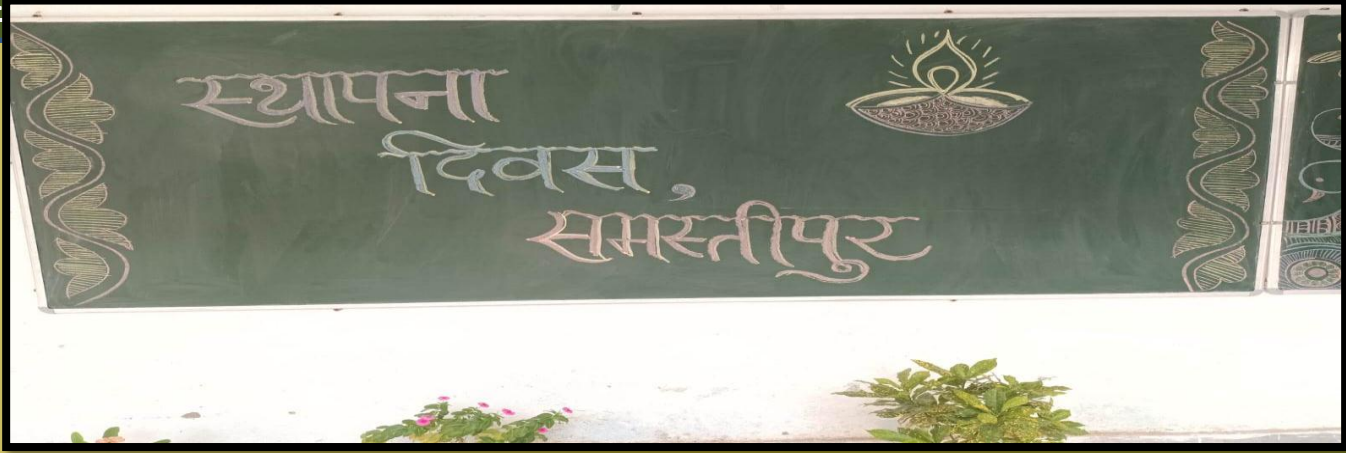 स्थापना
दिवस,
समस्तीपुर